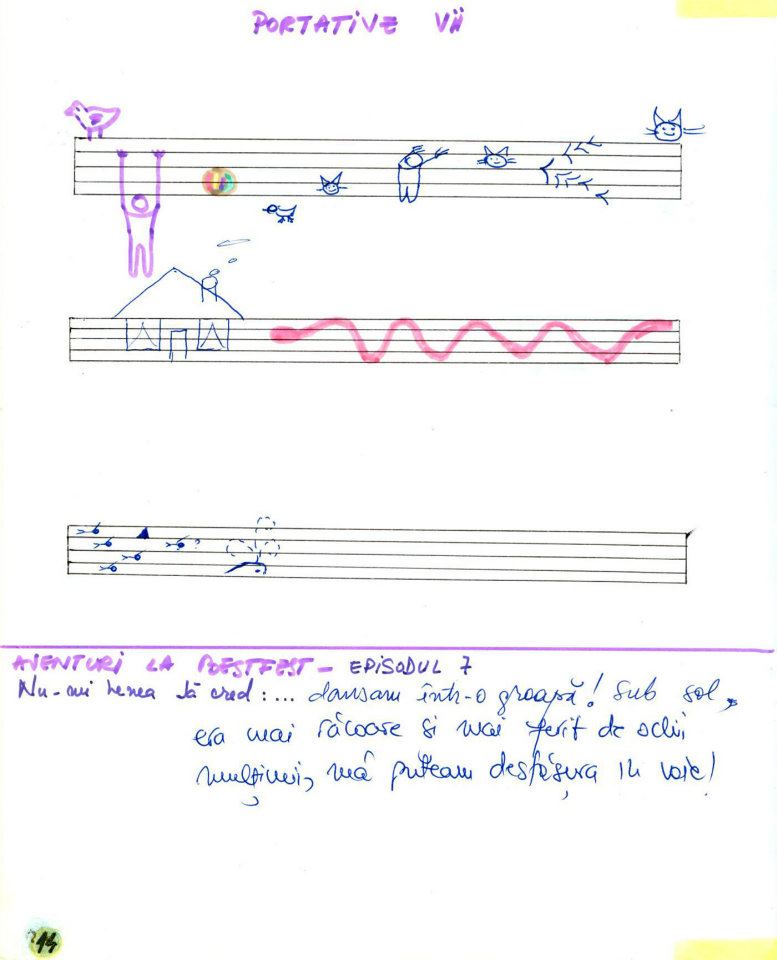 PORTATIVE VII
AVENTURI LA POEȘTFEST – EPISODUL 7
Nu-mi venea să cred: ... dansam într-o groapă! Sub sol,
era mai răcoare și mai ferit de ochii
mulțimii, mă puteam desfășura în voie!
14